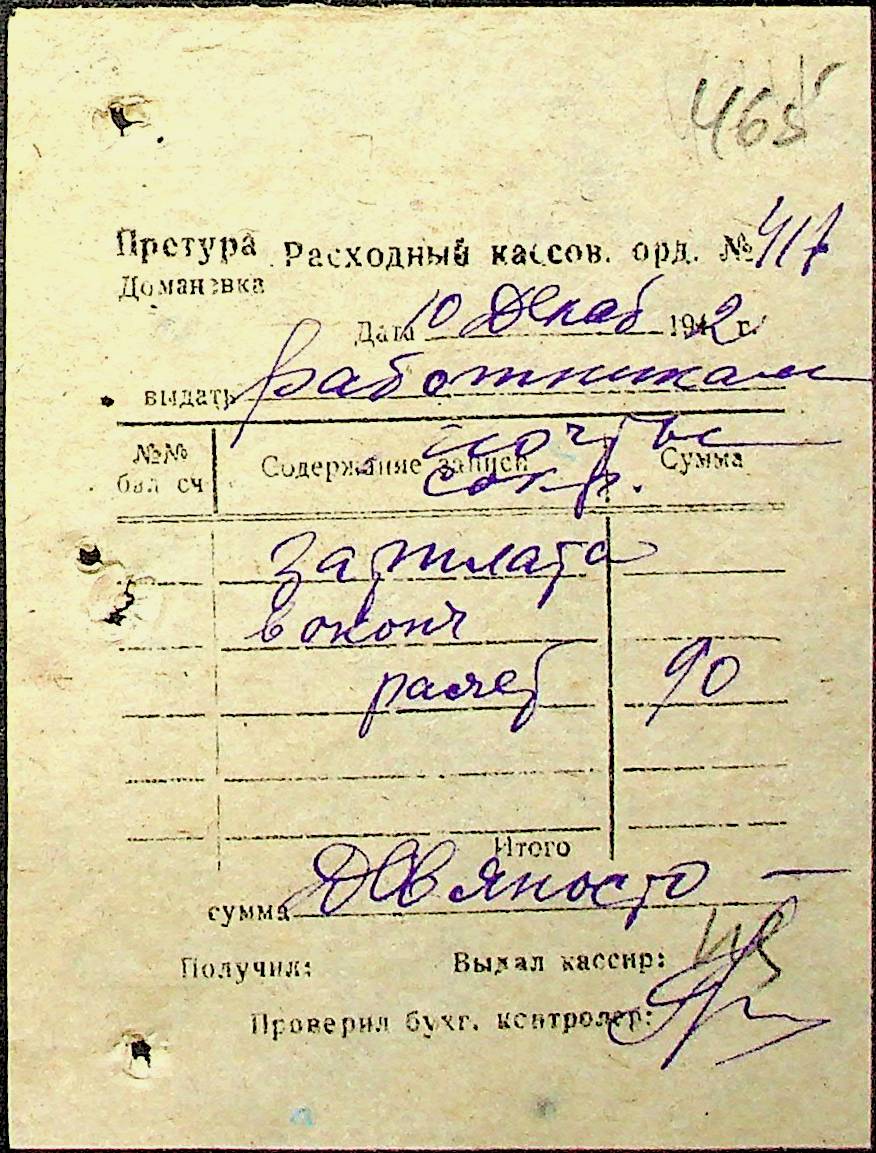 465
Претура Расходный кассов. орд. № 417
Доманевка
Дата 10 Декаб 1942 г.
выдать работникам
почты
№№ бал сч Содержание записи Сумма
зарплата
в оконч
расчет 90
Итого
сумма Девяносто —
Получил: Выдал кассир:
Проверил бухг. контролер: